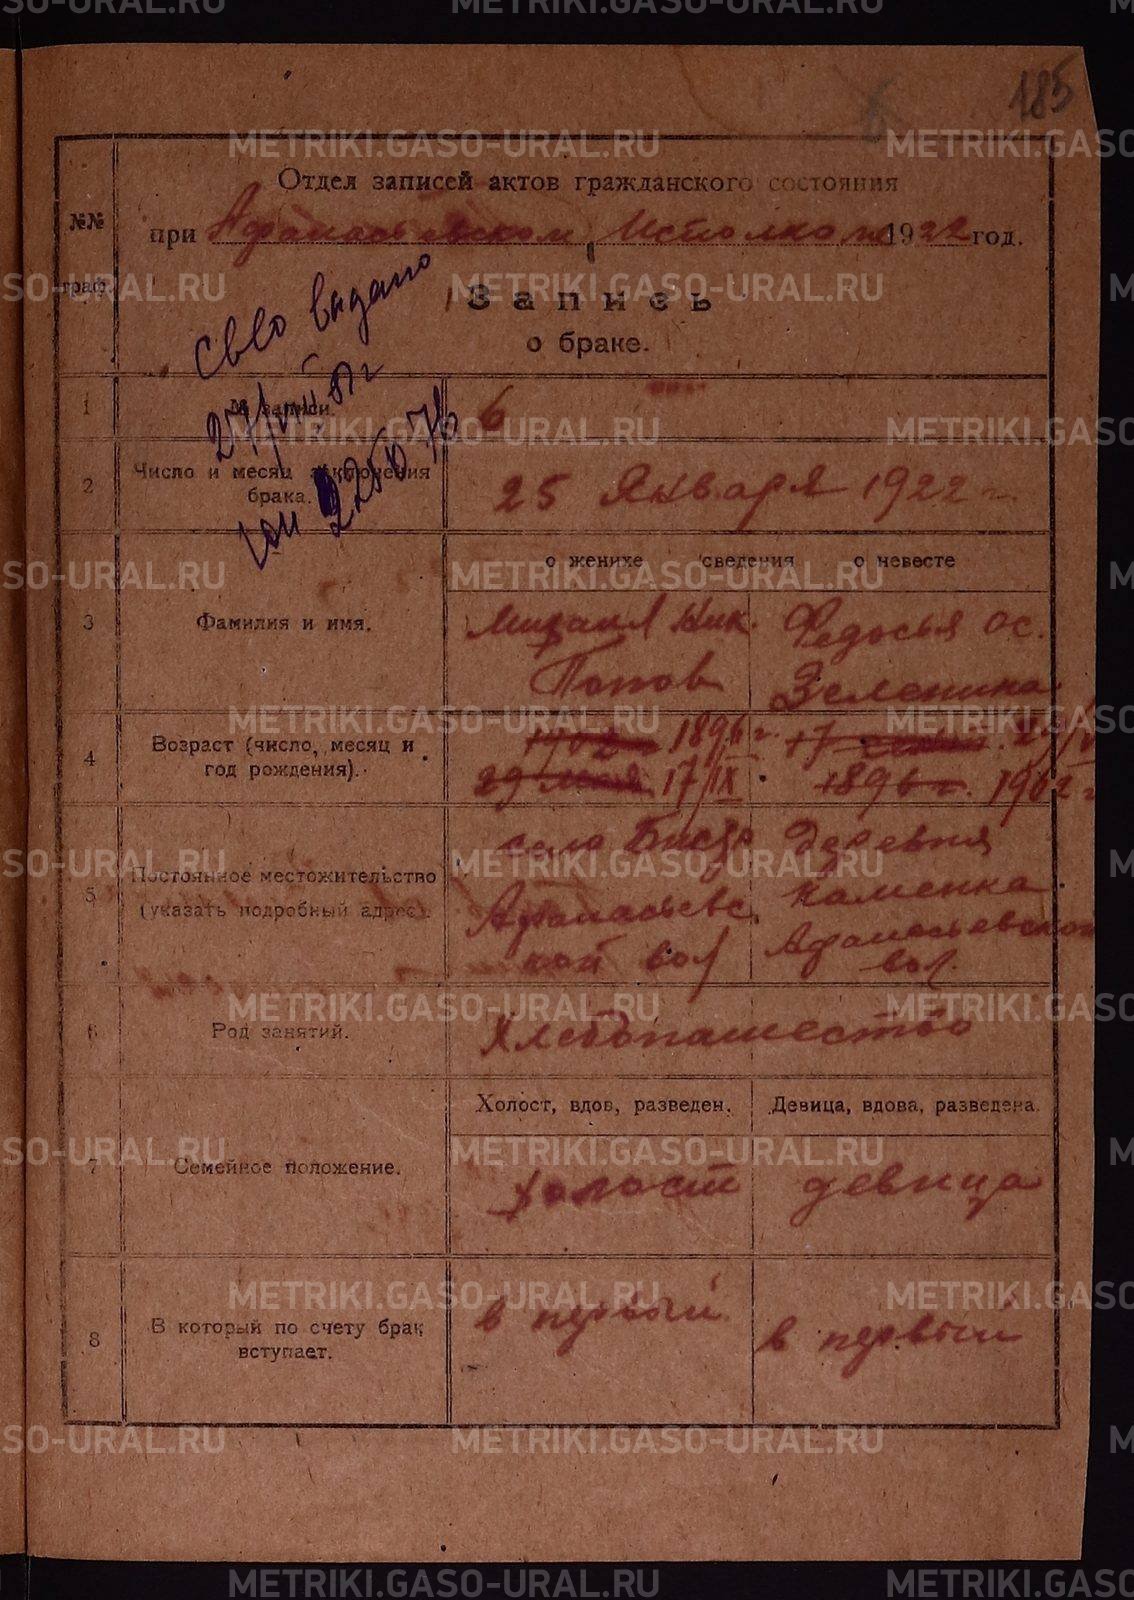 185
Отдел записей актов гражданского состояния
при Афанасьевском Исполком 1922 год.
№№
граф.
Запись
о браке.
свво выдано
27/VIII
1
№ записи.
6
2
Число и месяц заключения
брака.
25 Января 1922 г.
о женихе сведения о невесте
3
Фамилия и имя.
Михаил Ник.
Попов
Федосья Ос.
Зеленина
4
Возраст (число, месяц и
год рождения).
1902 1896 г.
29 мая 17/IX
17
1896 г. 1902 г
5
Постоянное местожительство
(указать подробный адрес).
село
Афанасьевс
кой вол
Деревня
Каменка
Афанасьевской
вол.
6
Род занятий.
Хлебопашество
Холост, вдов, разведен.
Девица, вдова, разведена.
7
Семейное положение.
холост
девица
8
В который по счету брак
вступает.
в первый
в первый
METRIKI.GASO-URAL.RU